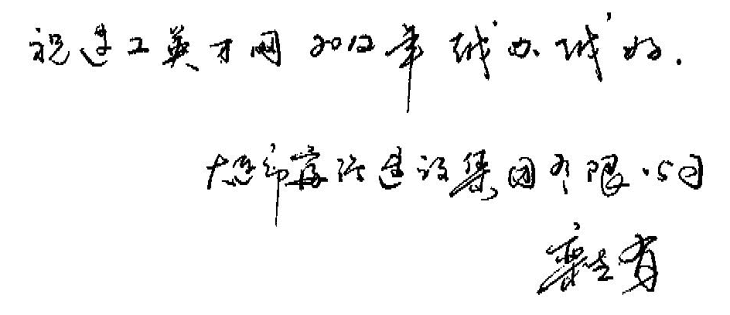 祝建工英才网2012年越办越好.
大连市 建设集团有限公司